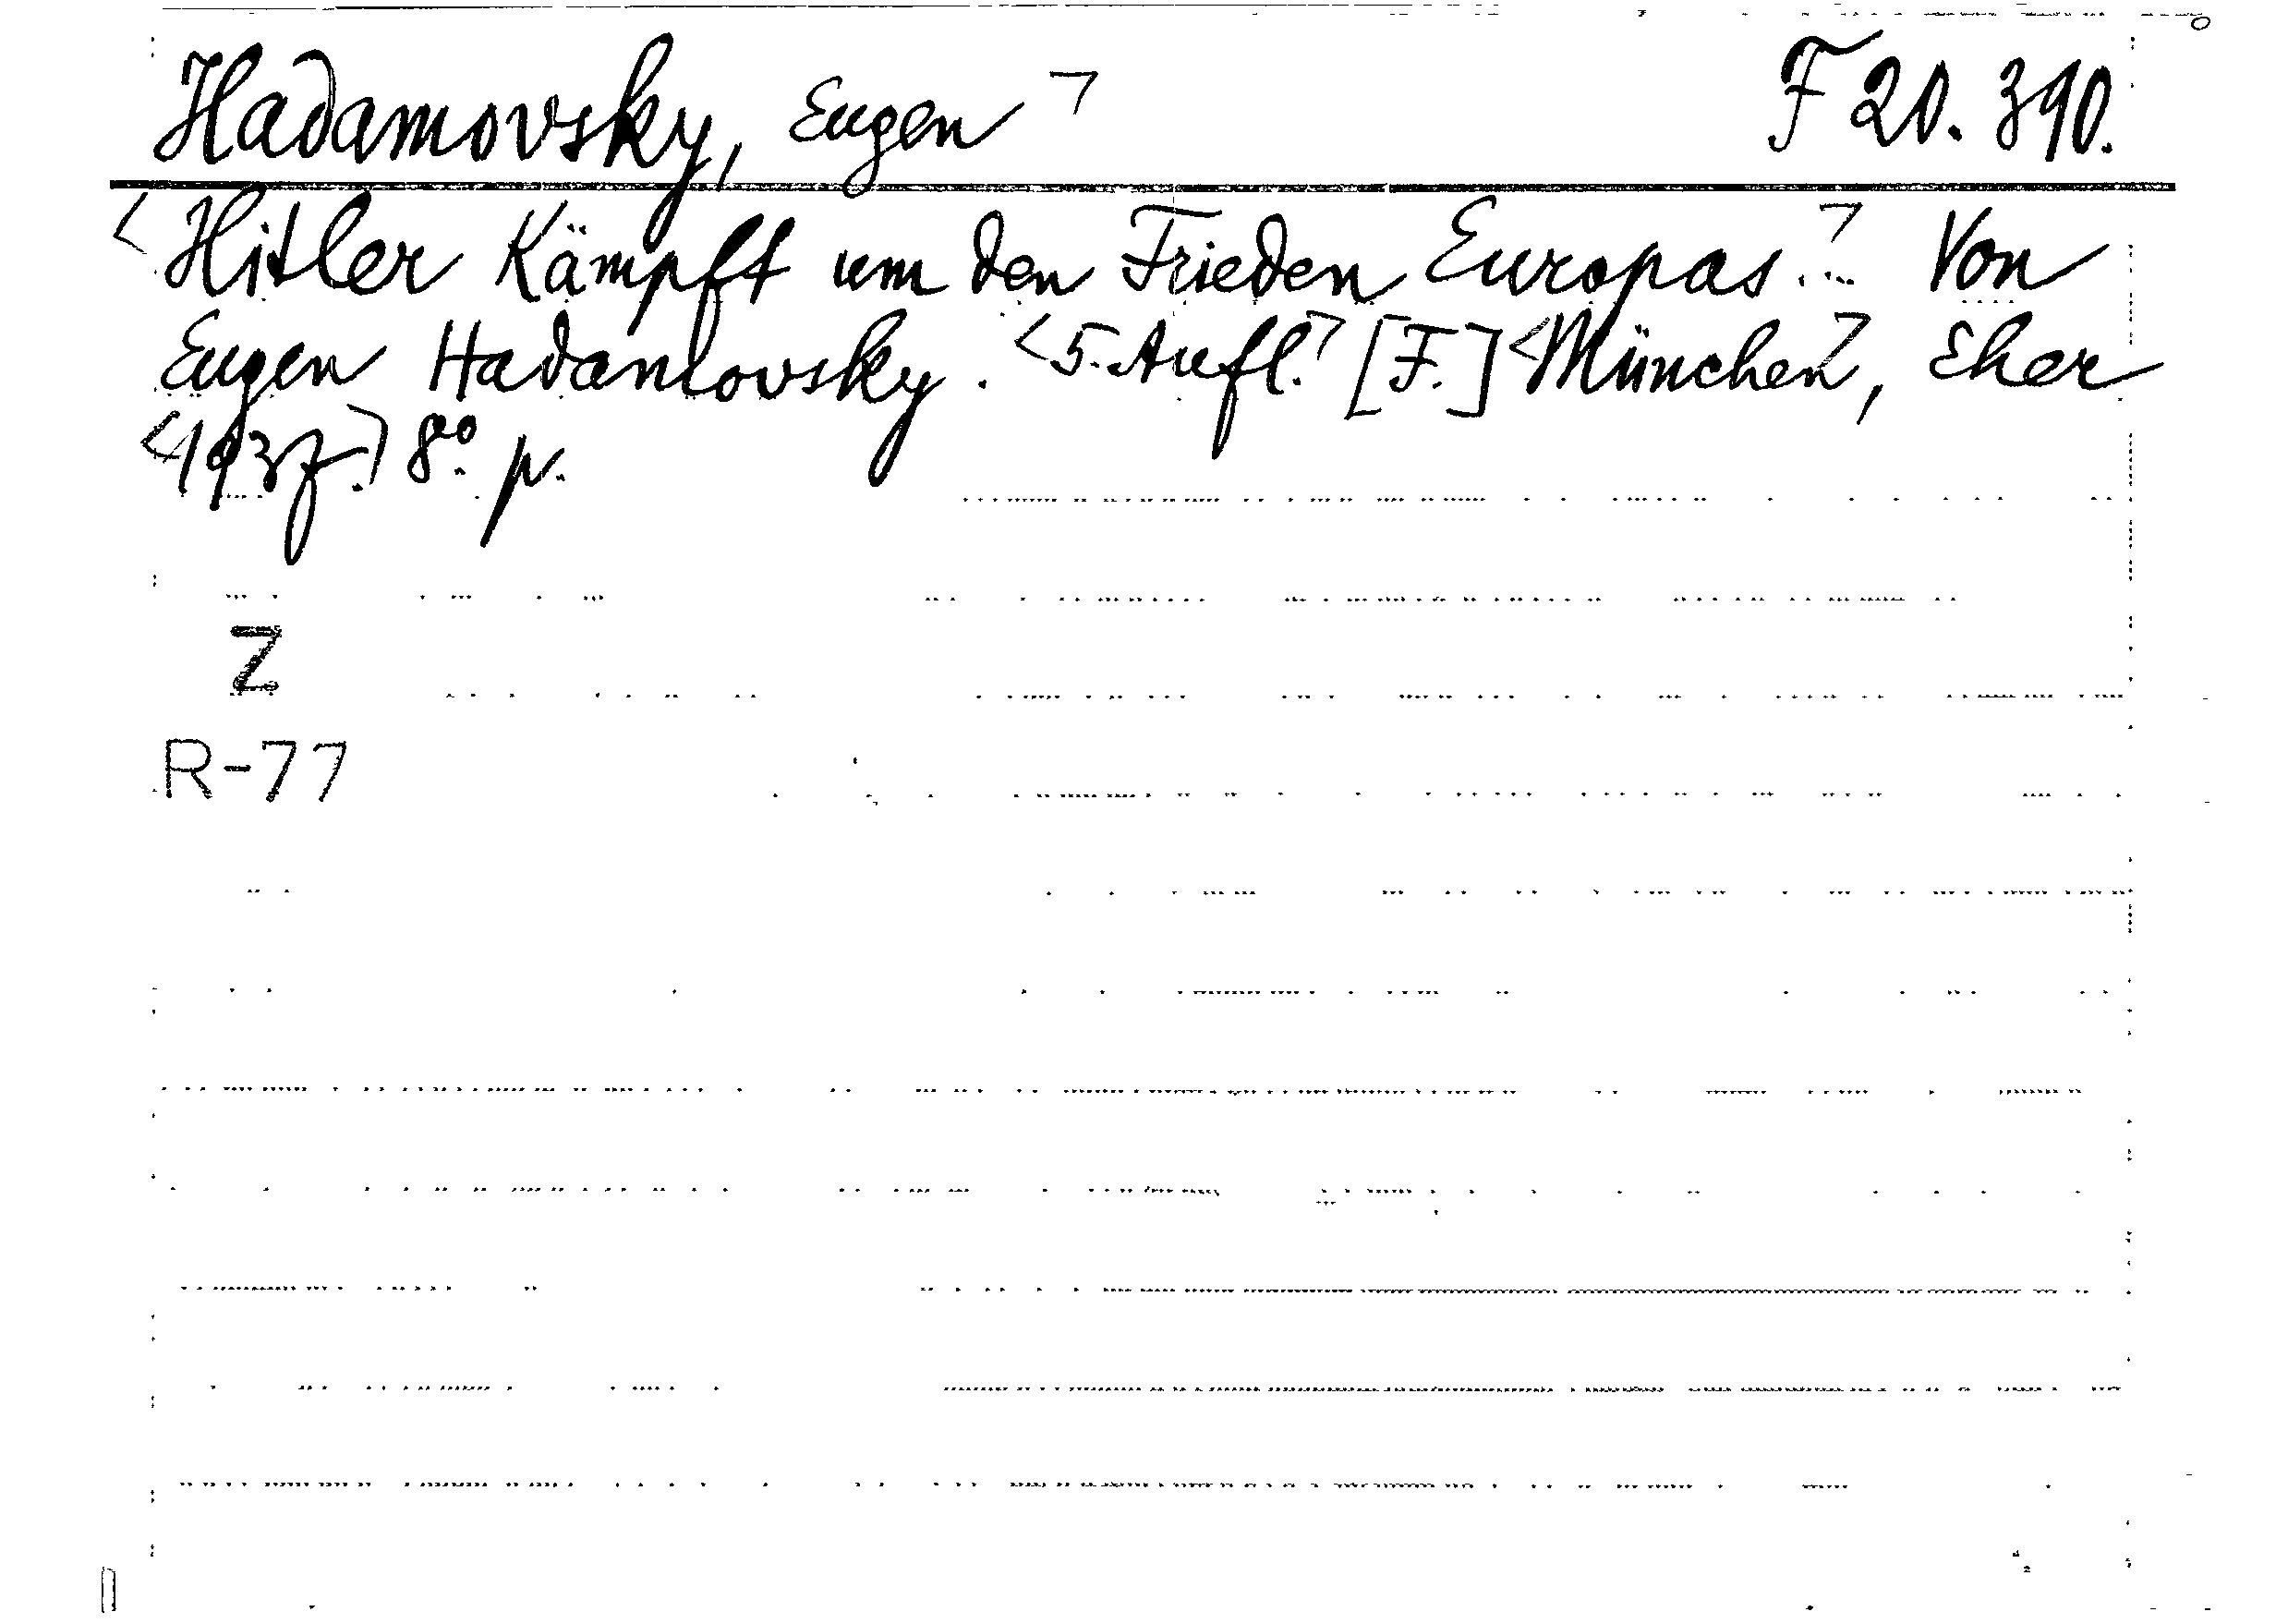 Hadamovsky, Eugen ⌝ F 20.390.
<Hitler Kämpft um den Frieden Europas.⌝ Von
Eugen Hadamovsky. <5. Aufl.⌝ [F.] <München⌝, Eher
<1937.⌝ 8° p.
Z
R-77